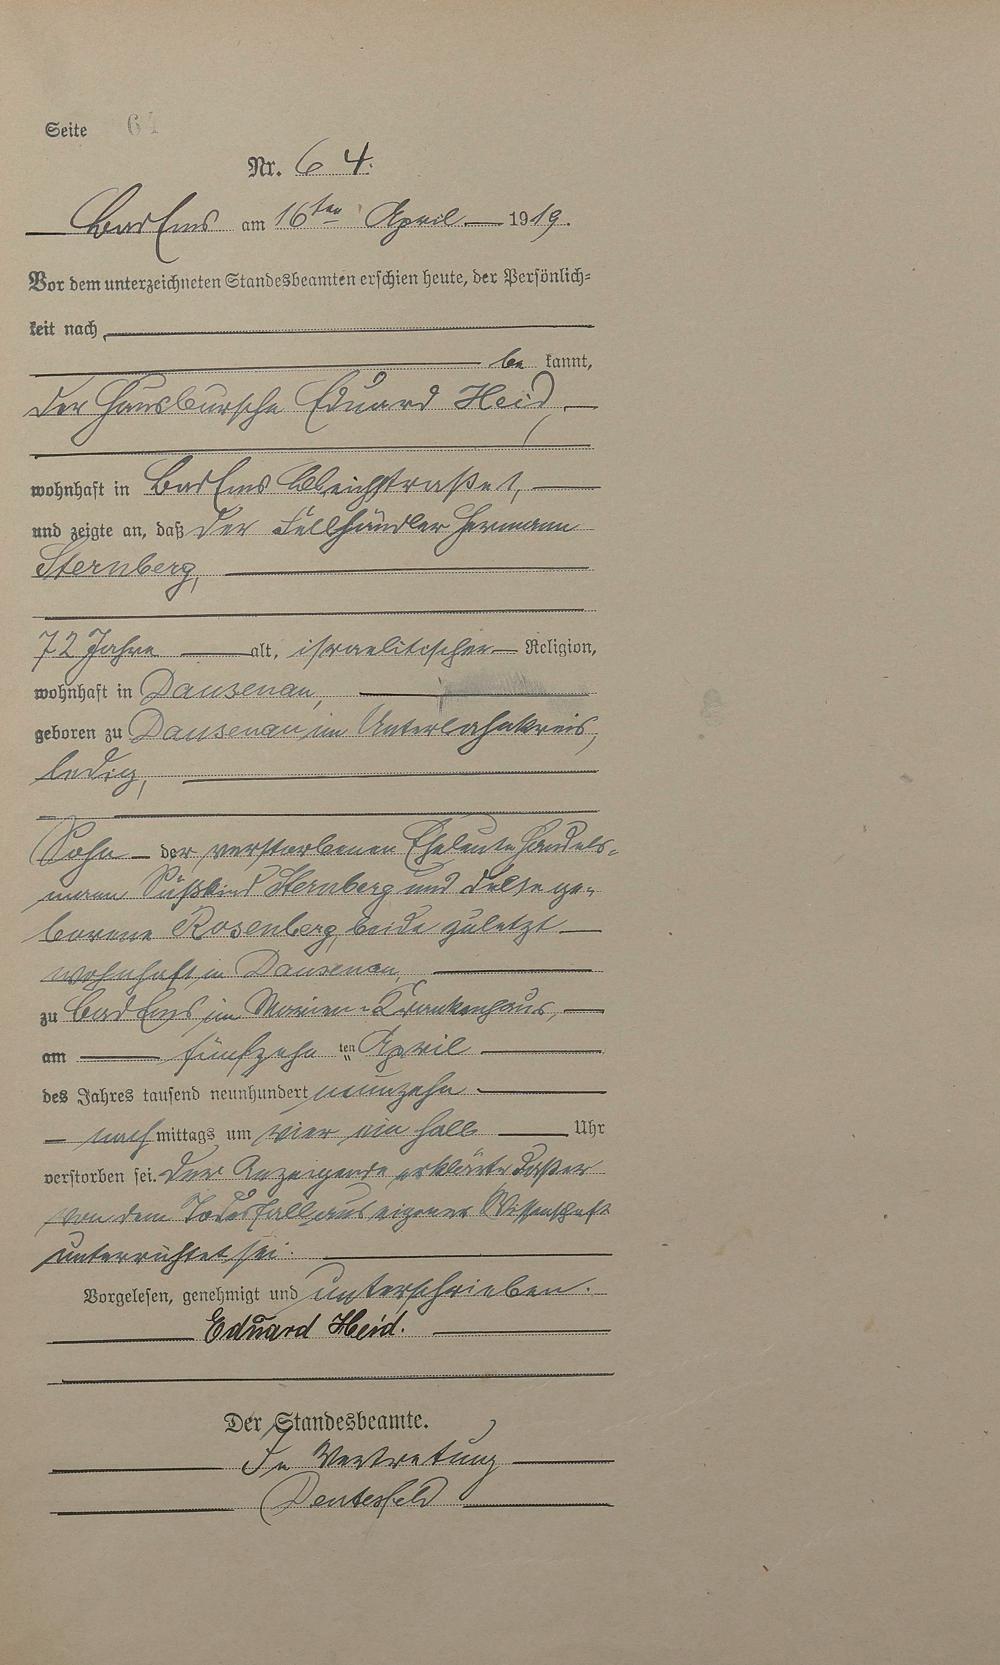 Seite 64
Nr. 64.
Bad Ems am 16ten April 1919.
Vor dem unterzeichneten Standesbeamten erschien heute, der Persönlich=
keit nach
be kannt,
der Hausbursche Eduard Heid,
wohnhaft in Bad Ems Bleichstraße 1,
und zeigte an, daß der Fellhändler Hermann
Sternberg,
72 Jahre alt, israelitischer Religion,
wohnhaft in Dausenau,
geboren zu Dausenau im Unterlahnkreis,
ledig,
Sohn der verstorbenen Eheleute Handels-
mann Süßkind Sternberg und ge-
borene Rosenberg, beide zuletzt
wohnhaft in Dausenau,
zu Bad Ems im Marien-Krankenhaus,
am fünfzehn ten April
des Jahres tausend neunhundert neunzehn
nach mittags um vier ein halb Uhr
verstorben sei. Der Anzeigende erklärte daß er
von dem Todesfall aus eigener Wissenschaft
unterrichtet sei.
Vorgelesen, genehmigt und unterschrieben.
Eduard Heid.
Der Standesbeamte.
In Vertretung